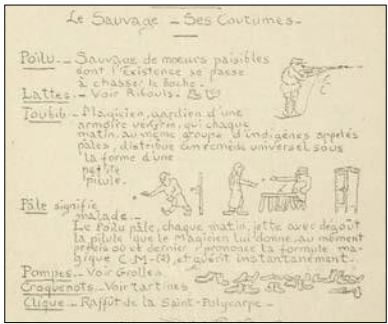 Le Sauvage - Ses Coutumes -
Poilu. - Sauvage de moeurs paisibles
dont l'existence se passe
à chasser le boche. -
Lattes. - Voir Ribouis.
Toubib. - Magicien, gardien d'une
armoire vekrin, qui chaque
matin, au même groupe d'indigènes appelés
pales, distribue un remède universel sous
la forme d'une
petite
pilule.
Pâle signifie
malade. -
Le Poilu pâle, chaque matin, jette avec dégoût
la pilule que le Magicien lui donne, au moment
précis où ce dernier prononce la formule ma-
gique C.M-(2), et guérit instantanément. -
Pompes. - Voir Grollen
Croquenots. Voir tartines
Clique. - Raffût de la Saint-Polycarpe -